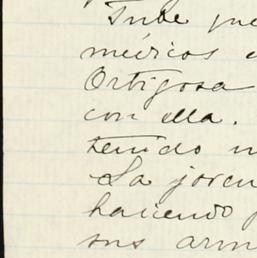 Tube que
médicos
Ortigosa
con ella.
tenido
La joven
haciendo
sus arm